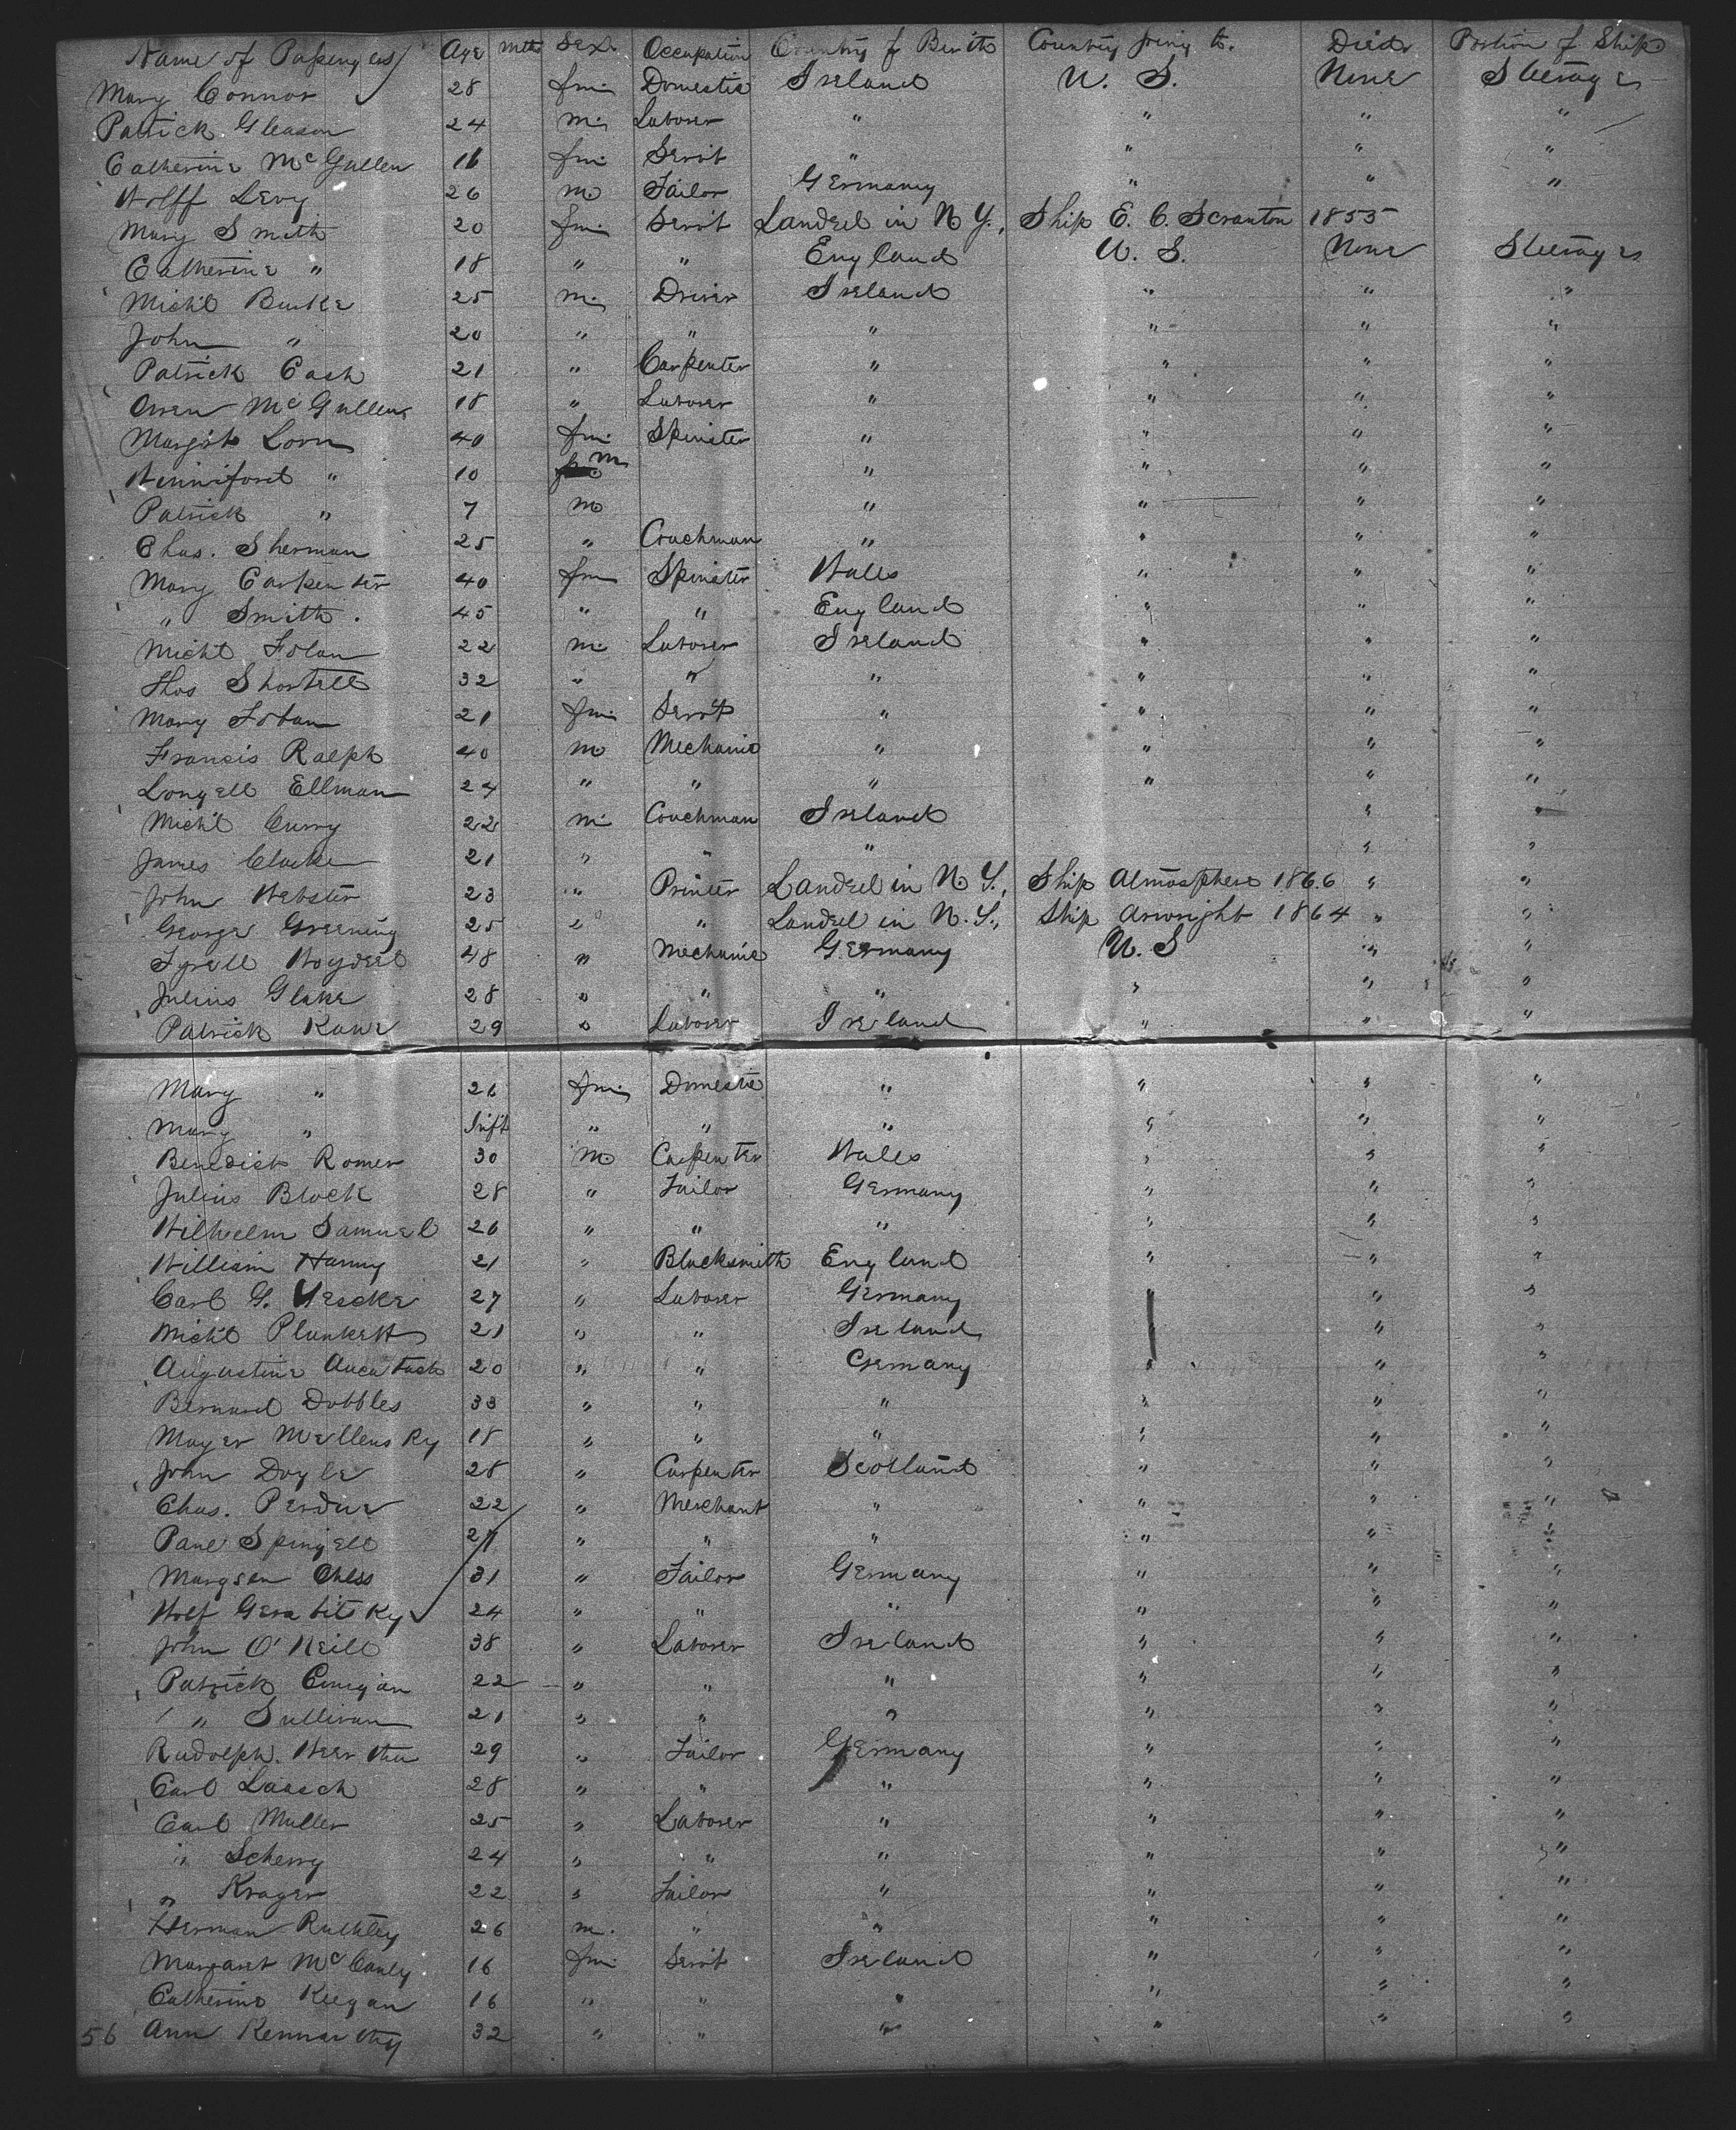 Name of Passengers Age mth Sex Occupation Country of Birth Country going to. Died Portion of Ship
Mary Connor 28 fm Domestic Ireland U. S. None Steerage
Patrick Gleason 24 m Laborer " " " "
Catherine McGullen 16 fm Servt " " " "
Wolff Levy 26 m Tailor Germany " " "
Mary Smith 20 fm Servt Landed in N Y., Ship E. C. Scranton 1855
Catherine " 18 " " England U. S. None Steerage
Michl Burke 25 m Driver Ireland " " "
John " 20 " " " " " "
Patrick Cash 21 " Carpenter " " " "
Owen McGullen 18 " Laborer " " " "
Margt Lorn 40 fm Spinster " " " "
Winniford " 10 m " " " "
Patrick " 7 m " " " "
Chas. Sherman 25 " Coachman " " " "
Mary Carpenter 40 fm Spinster Wales " " "
" Smith. 45 " " England " " "
Michl Folan 22 m Laborer Ireland " " "
Thos Shortell 32 " " " " " "
Mary Folan 21 fm Servt " " " "
Francis Ralph 40 m Mechanic " " " "
Longell Ellman 24 " " " " " "
Michl Curry 22 m Coachman Ireland " "
James Clarke 21 " " " " "
John Webster 23 " Printer Landed in N Y., Ship Atmosphere 1866 " "
George Greening 25 " " Landed in N. Y., Ship Arwright 1864 " "
Tyrell 48 " Mechanic Germany U. S " "
Julius Glake 28 " " " " " "
Patrick Kane 29 " Laborer Ireland " " "
Mary " 26 fm Domestic " " " "
Mary " Inft " " " " " "
Benedict Romer 30 m Carpenter Wales " " "
Julius Block 28 " Tailor Germany " " "
Wilhelm Samuel 26 " " " " " "
William Hanny 21 " Blacksmith England " " "
Carl G. Yescke 27 " Laborer Germany " " "
Michl Plunkett 21 " " Ireland " " "
Augustine 20 " " Germany " " "
Bernard Dobbles 33 " " " " " "
Mayer Mellensky 18 " " " " " "
John Doyle 28 " Carpenter Scotland " " "
Chas. Perdue 22 " Merchant " " " "
Paul Spingell 21 " " " " " "
Margsen Chess 31 " Tailor Germany " " "
Wolf Gerabitsky 24 " " " " " "
John O'Neill 38 " Laborer Ireland " " "
Patrick 22 " " " " " "
" Sullivan 21 " " " " " "
Rudolph 29 " Tailor Germany " " "
Carl Laasch 28 " " " " " "
Carl Muller 25 " Laborer " " " "
" Scherry 24 " " " " " "
" Kroger 22 " Tailor " " " "
Herman Ruthley 26 m. " " " " "
Margaret McCauly 16 fm Servt Ireland " " "
Catherine Keegan 16 " " " " " "
56 Ann 32 " " " " " "